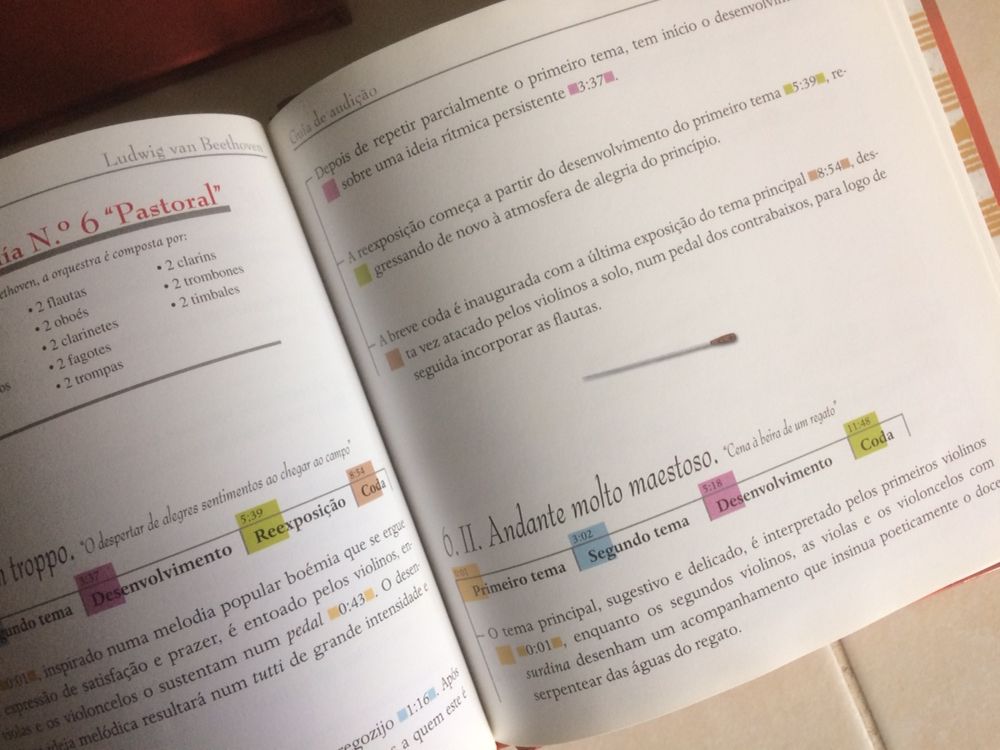 Ludwig van Beethoven
N.º 6 “Pastoral”
a orquestra é composta por:
• 2 flautas
• 2 oboés
• 2 clarinetes
• 2 fagotes
• 2 trompas
• 2 clarins
• 2 trombones
• 2 timbales
troppo. “O despertar de alegres sentimentos ao chegar ao campo”
3:37 5:39 8:54
tema Desenvolvimento Reexposição Coda
0:01, inspirado numa melodia popular boémia que se ergue
expressão de satisfação e prazer, é entoado pelos violinos, en-
violas e os violoncelos o sustentam num pedal 0:43. O desen-
ideia melódica resultará num tutti de grande intensidade e
regozijo 1:16. Após
a quem este é
Guia de audição
Depois de repetir parcialmente o primeiro tema, tem início o
sobre uma ideia rítmica persistente 3:37.
A reexposição começa a partir do desenvolvimento do primeiro tema 5:39, re-
gressando de novo à atmosfera de alegria do princípio.
A breve coda é inaugurada com a última exposição do tema principal 8:54, des-
ta vez atacado pelos violinos a solo, num pedal dos contrabaixos, para logo de
seguida incorporar as flautas.
6. II. Andante molto maestoso. “Cena à beira de um regato”
0:01 3:02 5:18 11:48
Primeiro tema Segundo tema Desenvolvimento Coda
O tema principal, sugestivo e delicado, é interpretado pelos primeiros violinos
0:01, enquanto os segundos violinos, as violas e os violoncelos com
surdina desenham um acompanhamento que insinua poeticamente o doce
serpentear das águas do regato.